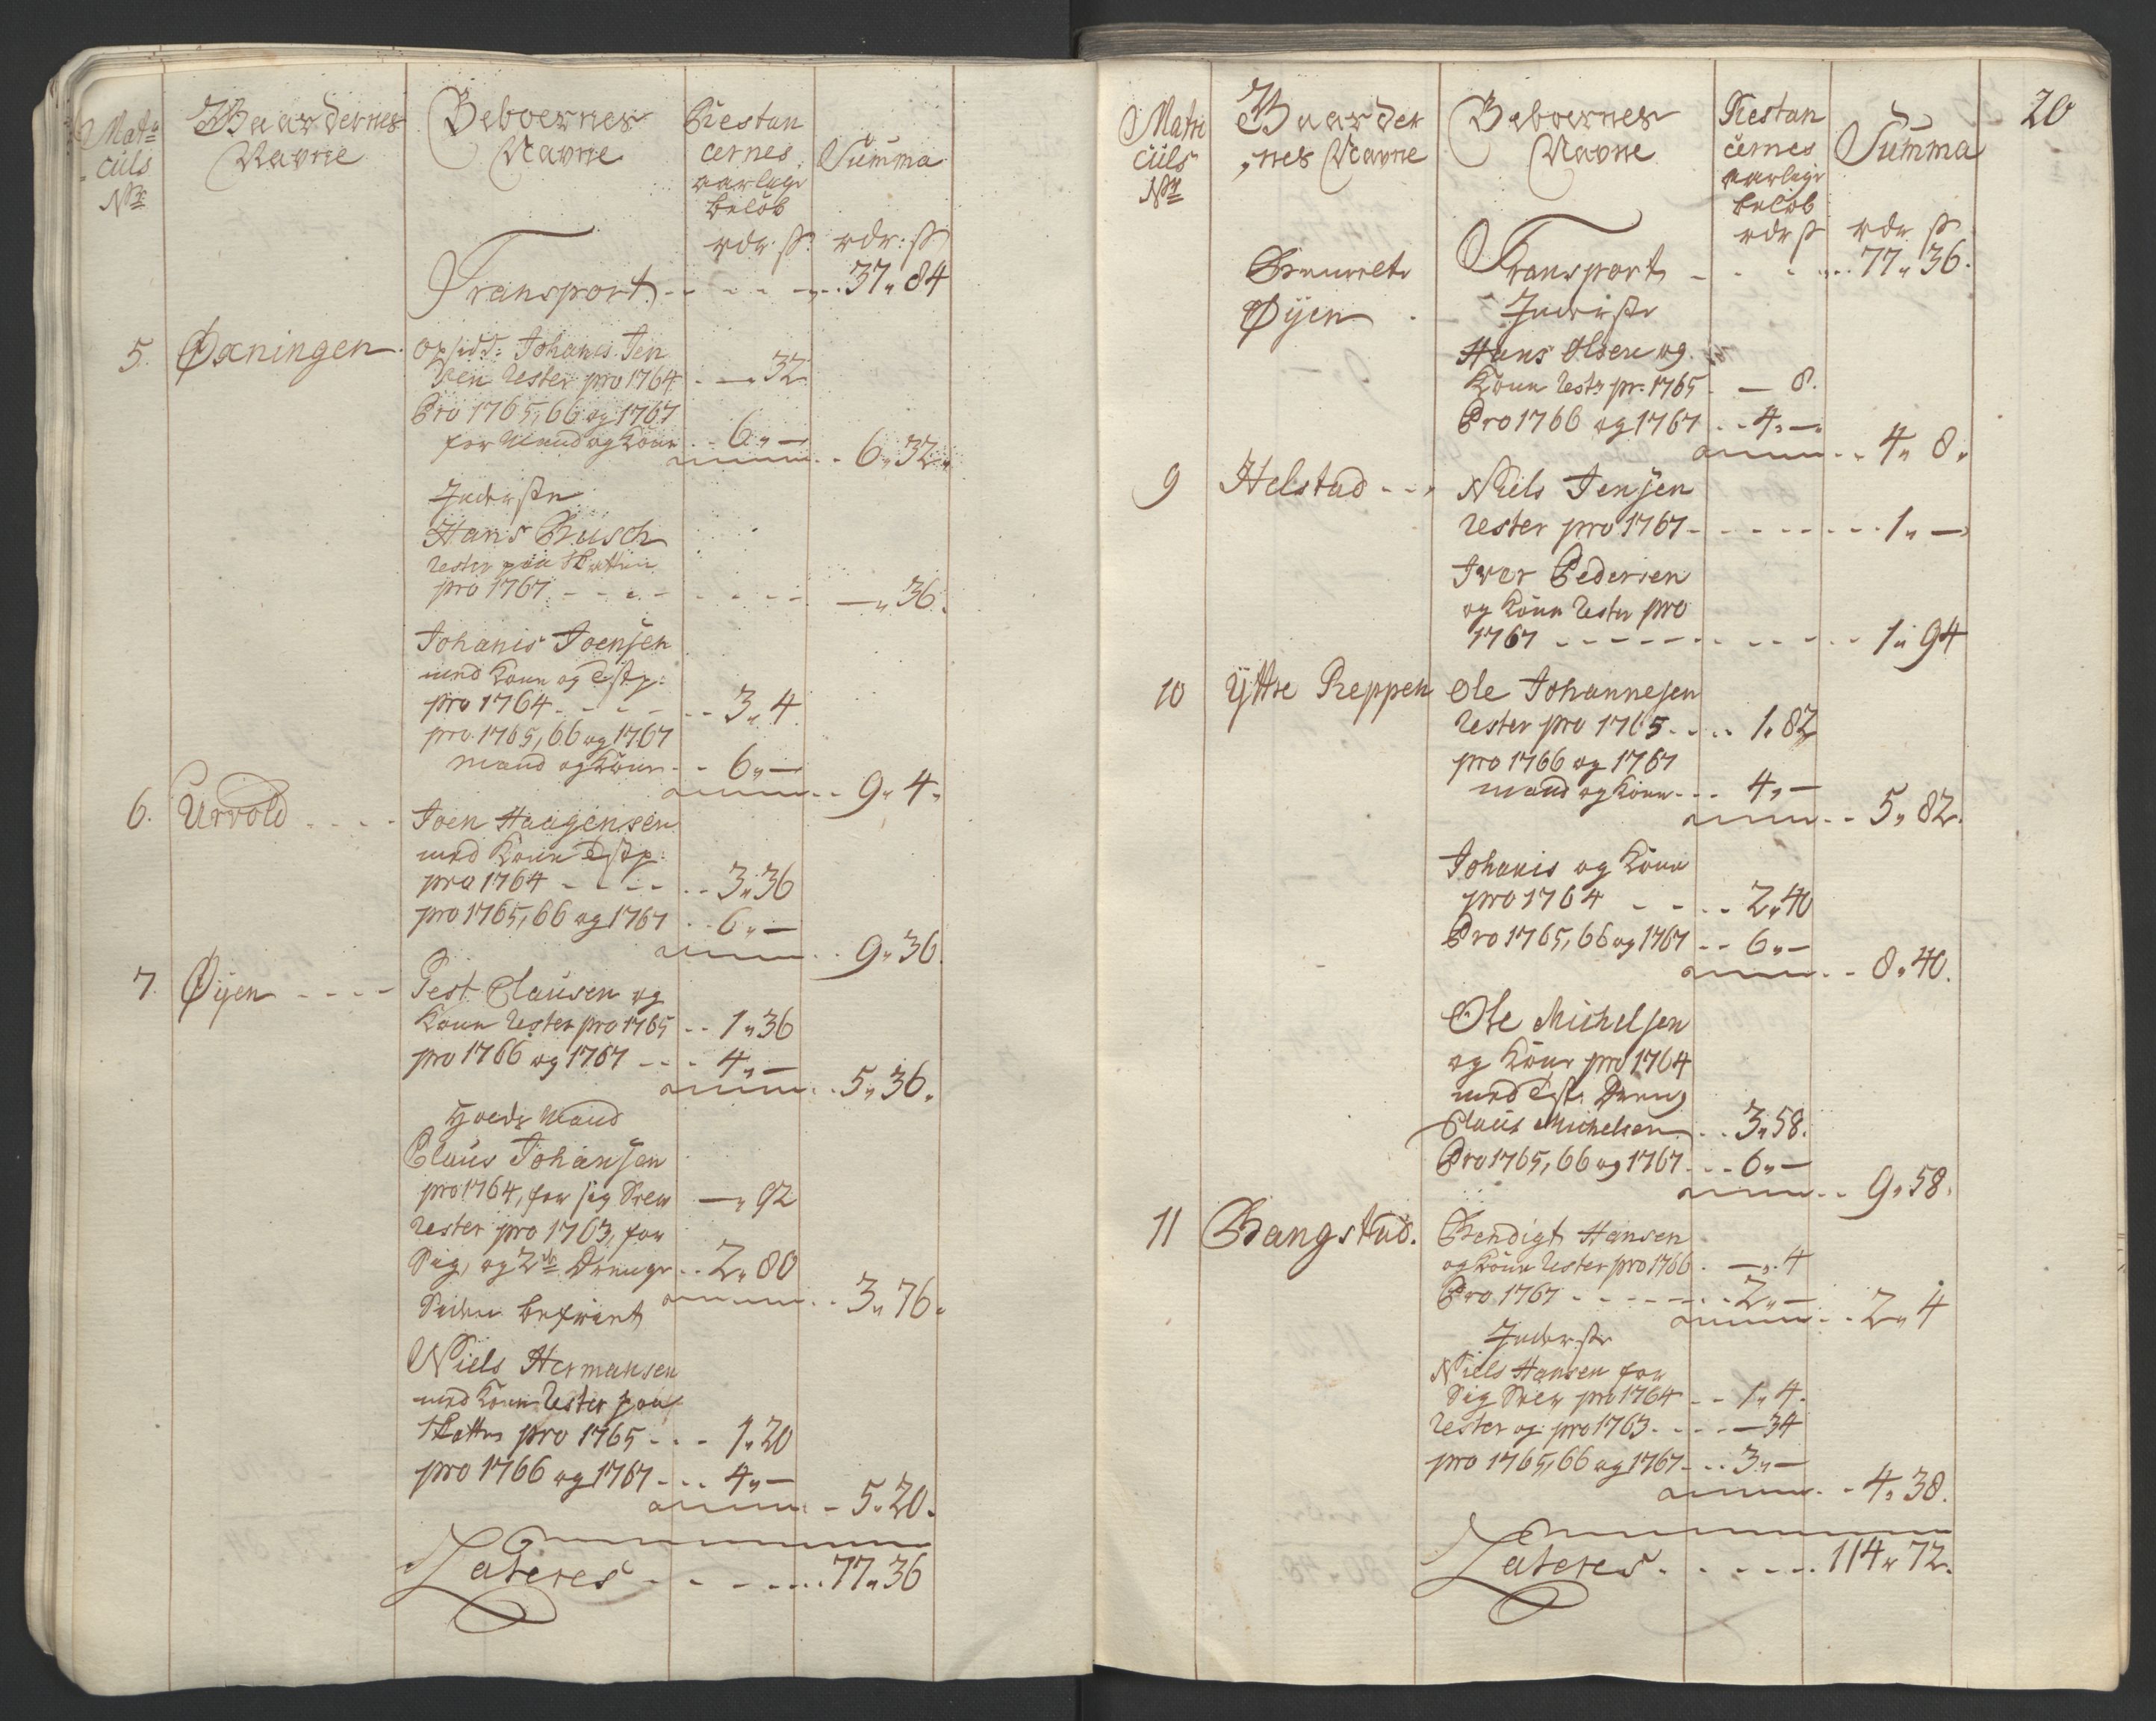 Matri
culs
No
Gaardernes
Navne
Beboernes
Navne
Restan
cernes
aarlige
beløb
Summa
rdr: ß rdr: ß
Transport 37 " 84
5. Øxningen opsidd: Johanis Jen
sen Rester pro 1764 — 32
Pro 1765, 66 og 1767
for Mand og Kone 6 " —
6 " 32 "
Inderste
Hans Busch
Rester paa Skatten
pro 1767 — " 36.
Johanis Joensen
med Kone og
pro 1764 3 " 4
pro 1765, 66 og 1767
Mand og Kone 6 " —
9 " 4 "
6. Urvold Joen Haagensen
med Kone
pro 1764 3 " 36
pro 1765, 66 og 1767 6 " —
9 " 36.
7. Øyen Pest Clausen og
Kone Rester pro 1765 1 " 36
pro 1766 og 1767 4 " —
5 " 36.
Huus Mand
Claus Johansen
pro 1764, for sig Selv — " 92
Rester pro 1763, for
Sig, og 2de Drenge 2 " 80
3 " 76.
Siden befriet
Niels Hermansen
med Kone Rester paa
Skatten pro 1765 1 " 20
pro 1766 og 1767 4 " —
5 " 20.
Lateres 77 " 36
20
Matri
culs
No
Gaarder
nes Navne
Beboernes
Navne
Restan
cernes
aarlige
beløb
Summa
rdr ß rdr ß
Transport 77 " 36.
Øyen Inderste
Hans Olsen og
Kone Rest: pr: 1765 — 8.
Pro 1766 og 1767 4 " —
4 " 8 "
9 Helstad Niels Jensen
Rester pro 1767 1 " —
Iver Pedersen
og Kone Rester pro
1767 1 " 94
10 Yttre Reppen Ole Johannesen
Rester pro 1765 1 " 82
pro 1766 og 1767
mand og Kone 4 " —
5 " 82.
Johanis og Kone
pro 1764 2 " 40
Pro 1765, 66 og 1767 6 " —
8 " 40.
Ole Michelsen
og Kone pro 1764
med Dreng
Claus Michelsen 3 " 58.
Pro 1765, 66 og 1767 6 " —
9 " 58.
11 Bangstad. Bendigt Hansen
og Kone Rester pro 1766 — " 4
Pro 1767 2 " —
2 " 4
Inderste
Niels Hansen for
Sig Selv pro 1764 1 " 4.
Rester og pro 1763 — 34
pro 1765, 66 og 1767 3 " —
4 " 38.
Lateres 114 " 72.